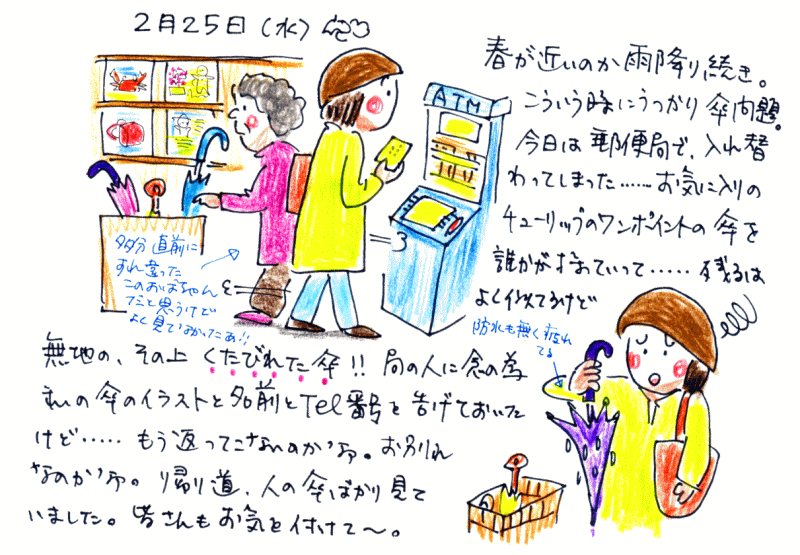 2月25日(水)
春が近いのか雨降り続き。
こういう時にうっかり傘問題。
今日は郵便局で、入れ替
わってしまった……お気に入りの
チューリップのワンポイントの傘を
誰かが持ていって……残るは
よく似てるけど
無地の、その上くたびれた傘!!局の人に念の為
私の傘のイラストと名前とTel番号を告げておいた
けど……もう返ってこないのかな。お別れ
なのかな。帰り道、人の傘ばかり見て
いました。皆さんもお気を付けて〜。
ATM
多分直前に
すれ違った
このおばちゃん
だと思うけど
よく見てなかったぁ!!
防水も無く疲れ
てる